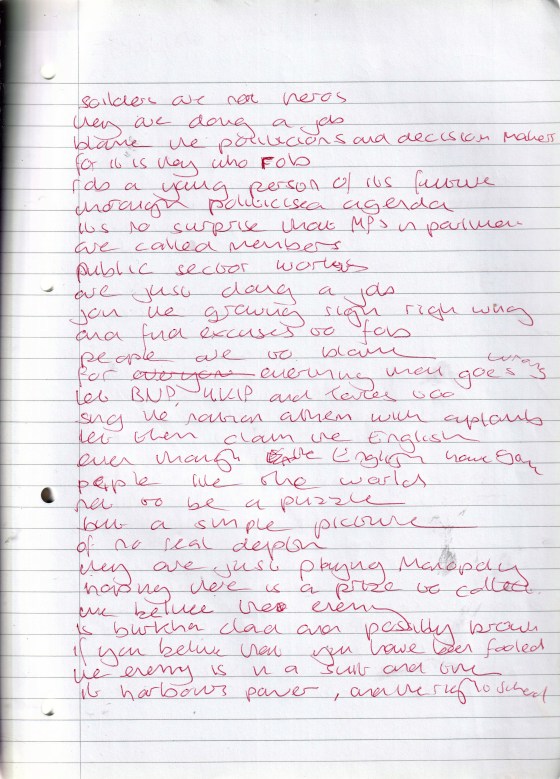 soilders are not heros
they are doing a job
blame the politicions and decision makers
for it is they who FOB
fob a young person of its future
through politicised agenda
its no surprise that MPs in parlimen
are called members
public sector workers
are just doing a job
join the growing right wing
and find excuses to fob
people are to blame
for everyone everything that goes wrong
let BNP, UKIP and Tories too
sing the nation athem with aplomb
let them claim the English
even though the English have
people like the world
not to be a puzzle
but a simple picture
of no real depth
they are just playing Monopoly
hoping there is a prize to collect
the enemy
is burkha clad and possibly brown
if you belive that you have been fooled
the enemy is in a suit and tie
it harbours power, and the rig to school